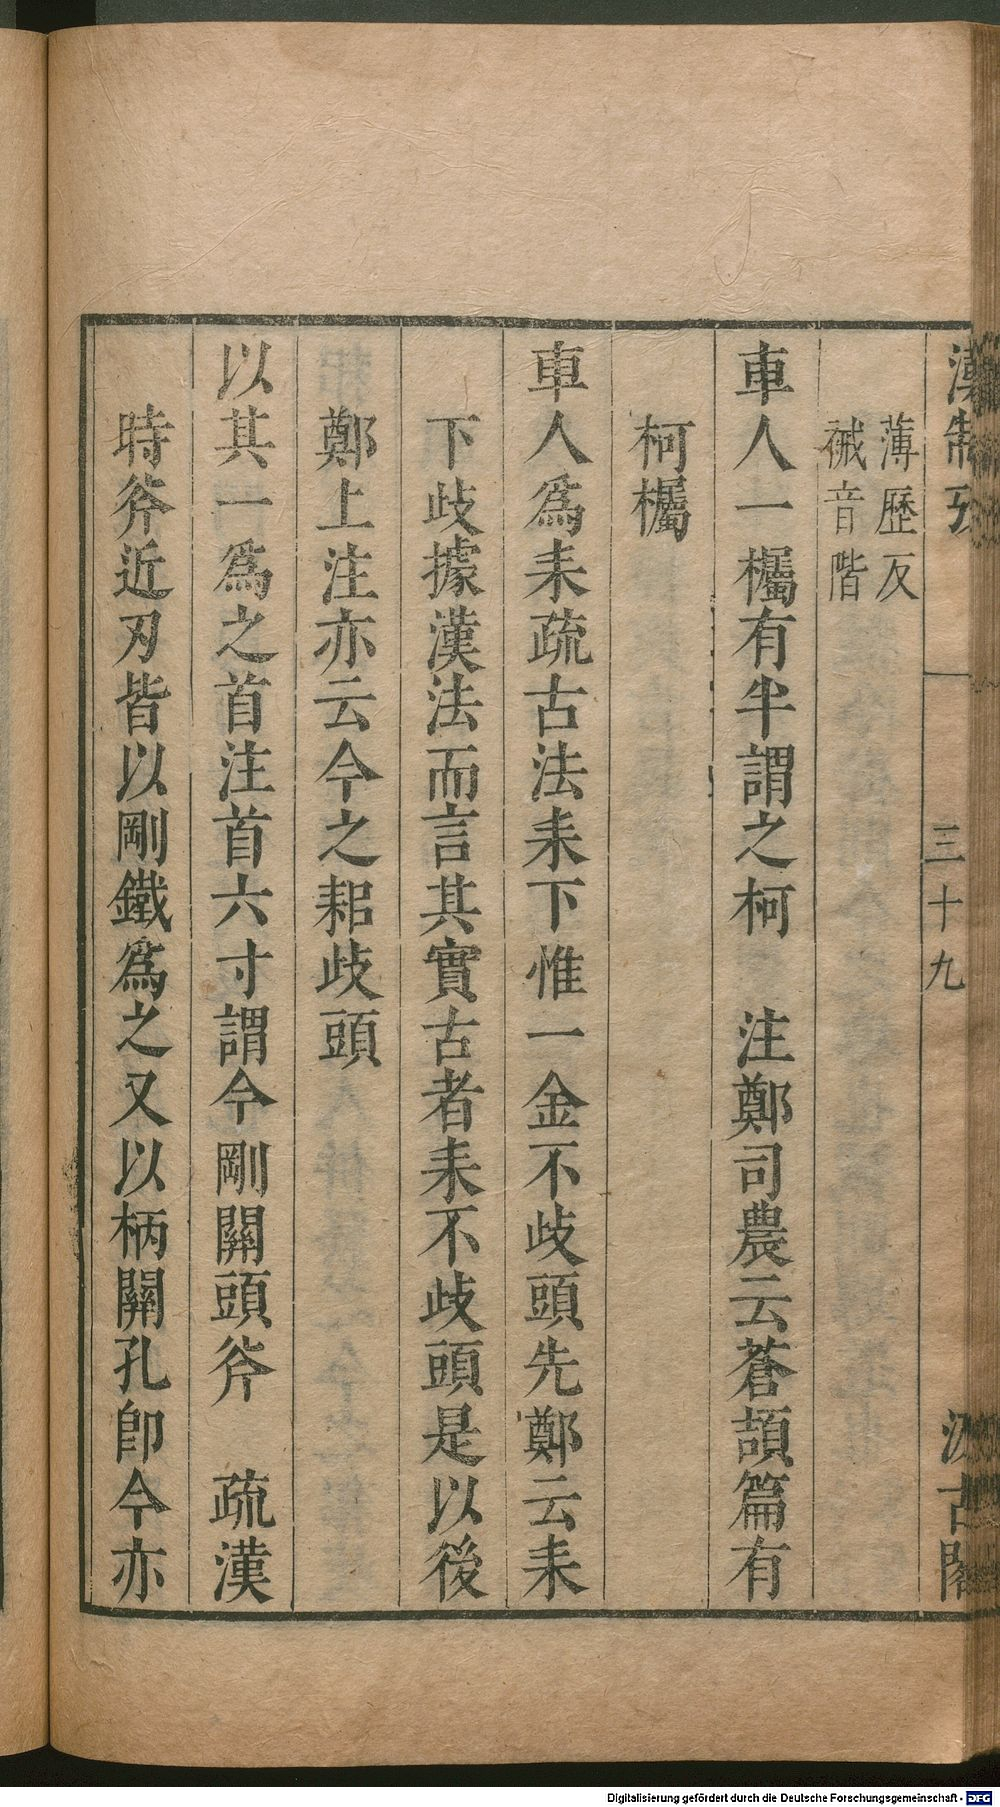 漢制攷
三十九
汲古閣
薄歷反
祴音階
車人一欘有半謂之柯　注鄭司農云蒼頡篇有
柯欘
車人爲耒疏古法耒下惟一金不歧頭先鄭云耒
下歧據漢法而言其實古者耒不歧頭是以後
鄭上注亦云今之耜歧頭
以其一爲之首注首六寸謂今剛關頭斧　疏漢
時斧近刃皆以剛鐵爲之又以柄關孔卽今亦
Digitalisierung gefördert durch die Deutsche Forschungsgemeinschaft - DFG